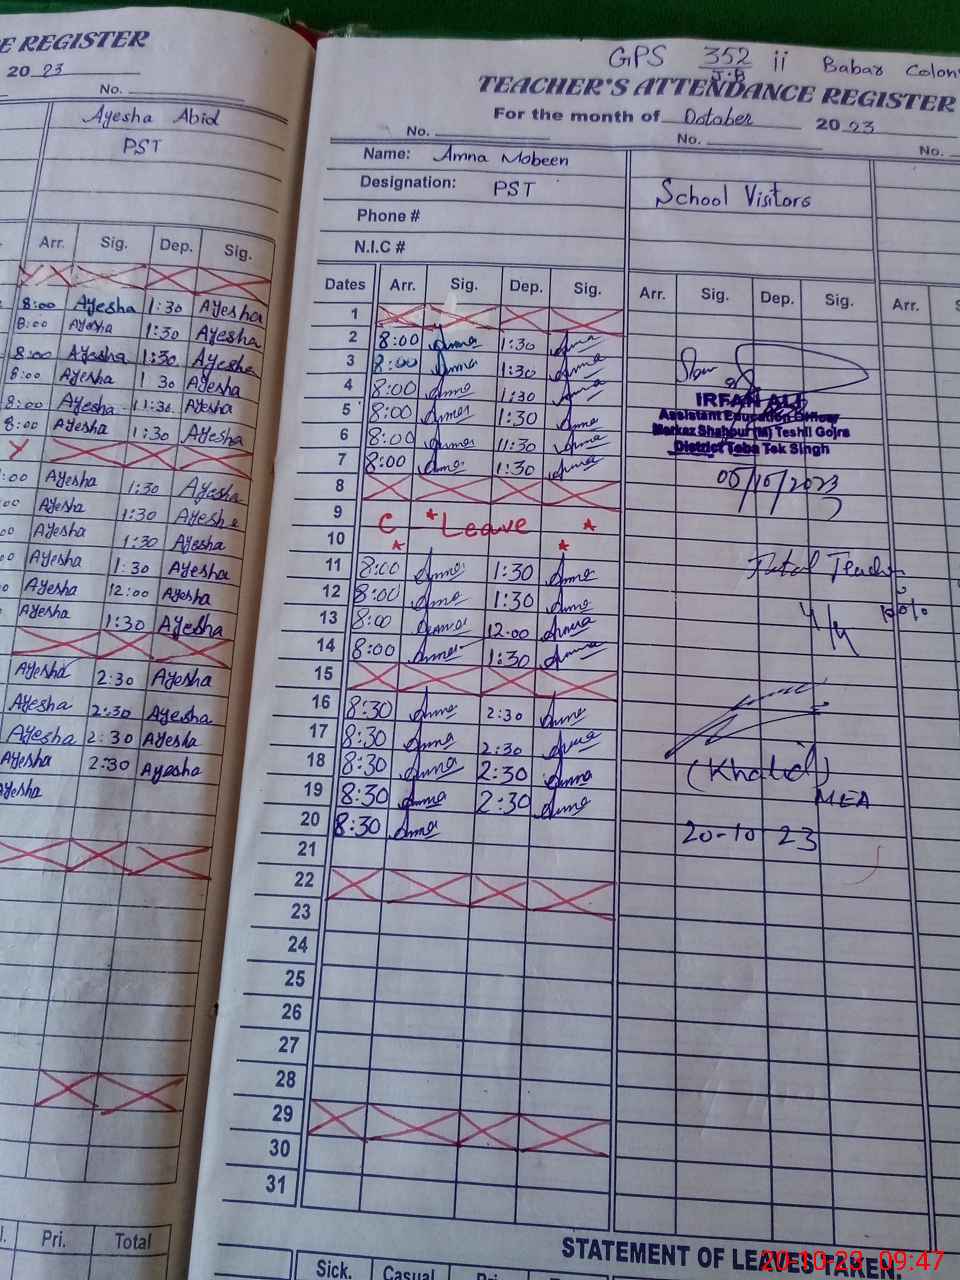 CE REGISTER
20 23
No.
Ayesha Abid
PST
Arr. Sig. Dep. Sig.
8:00 Ayesha 1:30 Ayesha
8:00 Ayesha 1:30 Ayesha
8:00 Ayesha 1:30 Ayesha
8:00 Ayesha 1 30 Ayesha
8:00 Ayesha 1:30 Ayesha
8:00 Ayesha 1:30 Ayesha
:00 Ayesha 1:30 Ayesha
:00 Ayesha 1:30 Ayesha
00 Ayesha 1:30 Ayesha
00 Ayesha 1:30 Ayesha
0 Ayesha 12:00 Ayesha
Ayesha 1:30 Ayesha
Ayesha 2:30 Ayesha
Ayesha 2:30 Ayesha
Ayesha 2:30 Ayesha
Ayesha 2:30 Ayesha
Ayesha
Pri. Total
GPS 352 ii Babar Colony
J.B
TEACHER'S ATTENDANCE REGISTER
For the month of October 20 23
No. No. No.
Name: Amna Mobeen
Designation: PST
School Visitors
Phone #
N.I.C #
Dates Arr. Sig. Dep. Sig. Arr. Sig. Dep. Sig. Arr.
1
2 8:00 Amna 1:30 Amna
3 8:00 Amna 1:30 Amna
4 8:00 Amna 1:30 Amna
5 8:00 Amna 1:30 Amna
6 8:00 Amna 1:30 Amna
7 8:00 Amna 1:30 Amna
8
9 C * Leave *
10 * *
11 8:00 Amna 1:30 Amna
12 8:00 Amna 1:30 Amna
13 8:00 Amna 12:00 Amna
14 8:00 Amna 1:30 Amna
15
16 8:30 Amna 2:30 Amna
17 8:30 Amna 2:30 Amna
18 8:30 Amna 2:30 Amna
19 8:30 Amna 2:30 Amna
20 8:30 Amna
21
22
23
24
25
26
27
28
29
30
31
IRFAN ALI
Assistant Education Officer
Markaz Shahpur (M) Teshil Gojra
District Toba Tek Singh
05/10/2023
Total Teacher
4/4 100%
(Khalid)
MEA
20-10 23
STATEMENT OF LEAVES TAKEN.
Sick. Casual Pri.
20 10 23 09:47